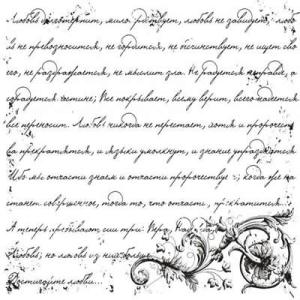 Любовь долготерпит, милосердствует, любовь не завидует, любо
вь не превозносится, не гордится, не бесчинствует, не ищет сво
его, не раздражается, не мыслит зла. Не радуется неправде, а
сорадуется истине; Все покрывает, всему верит, всего надеется
все переносит. Любовь никогда не перестает, хотя и пророчес
ва прекратятся, и языки умолкнут, и знание упразднится
Ибо мы отчасти знаем и отчасти пророчествуе ; когда же на
станет совершенное, тогда то, что отчасти, прекратится.
А теперь пребывают сии три: Вера, Над
Любовь; но любовь из них больше.
Достигайте любви...